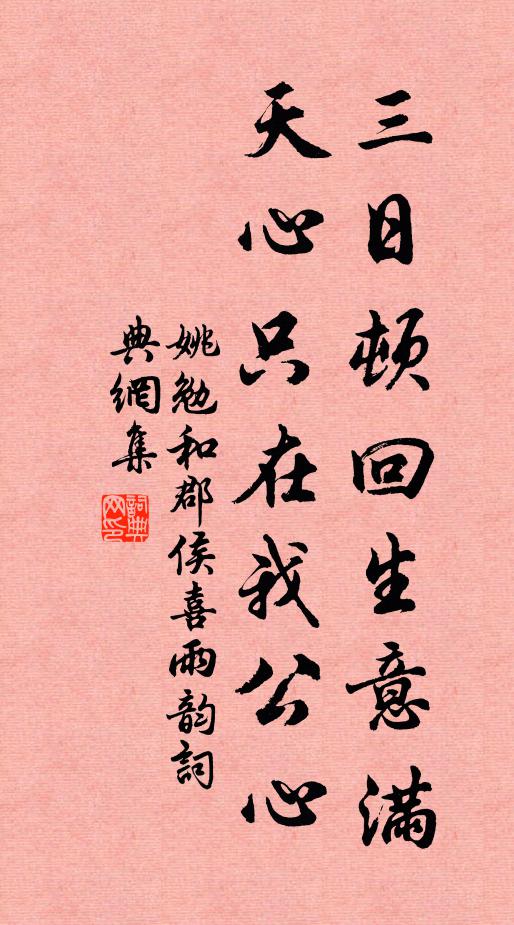 三日頓回生意滿
天心只在我公心
姚勉和郡侯喜雨韵詞
典網集
詞典
网印